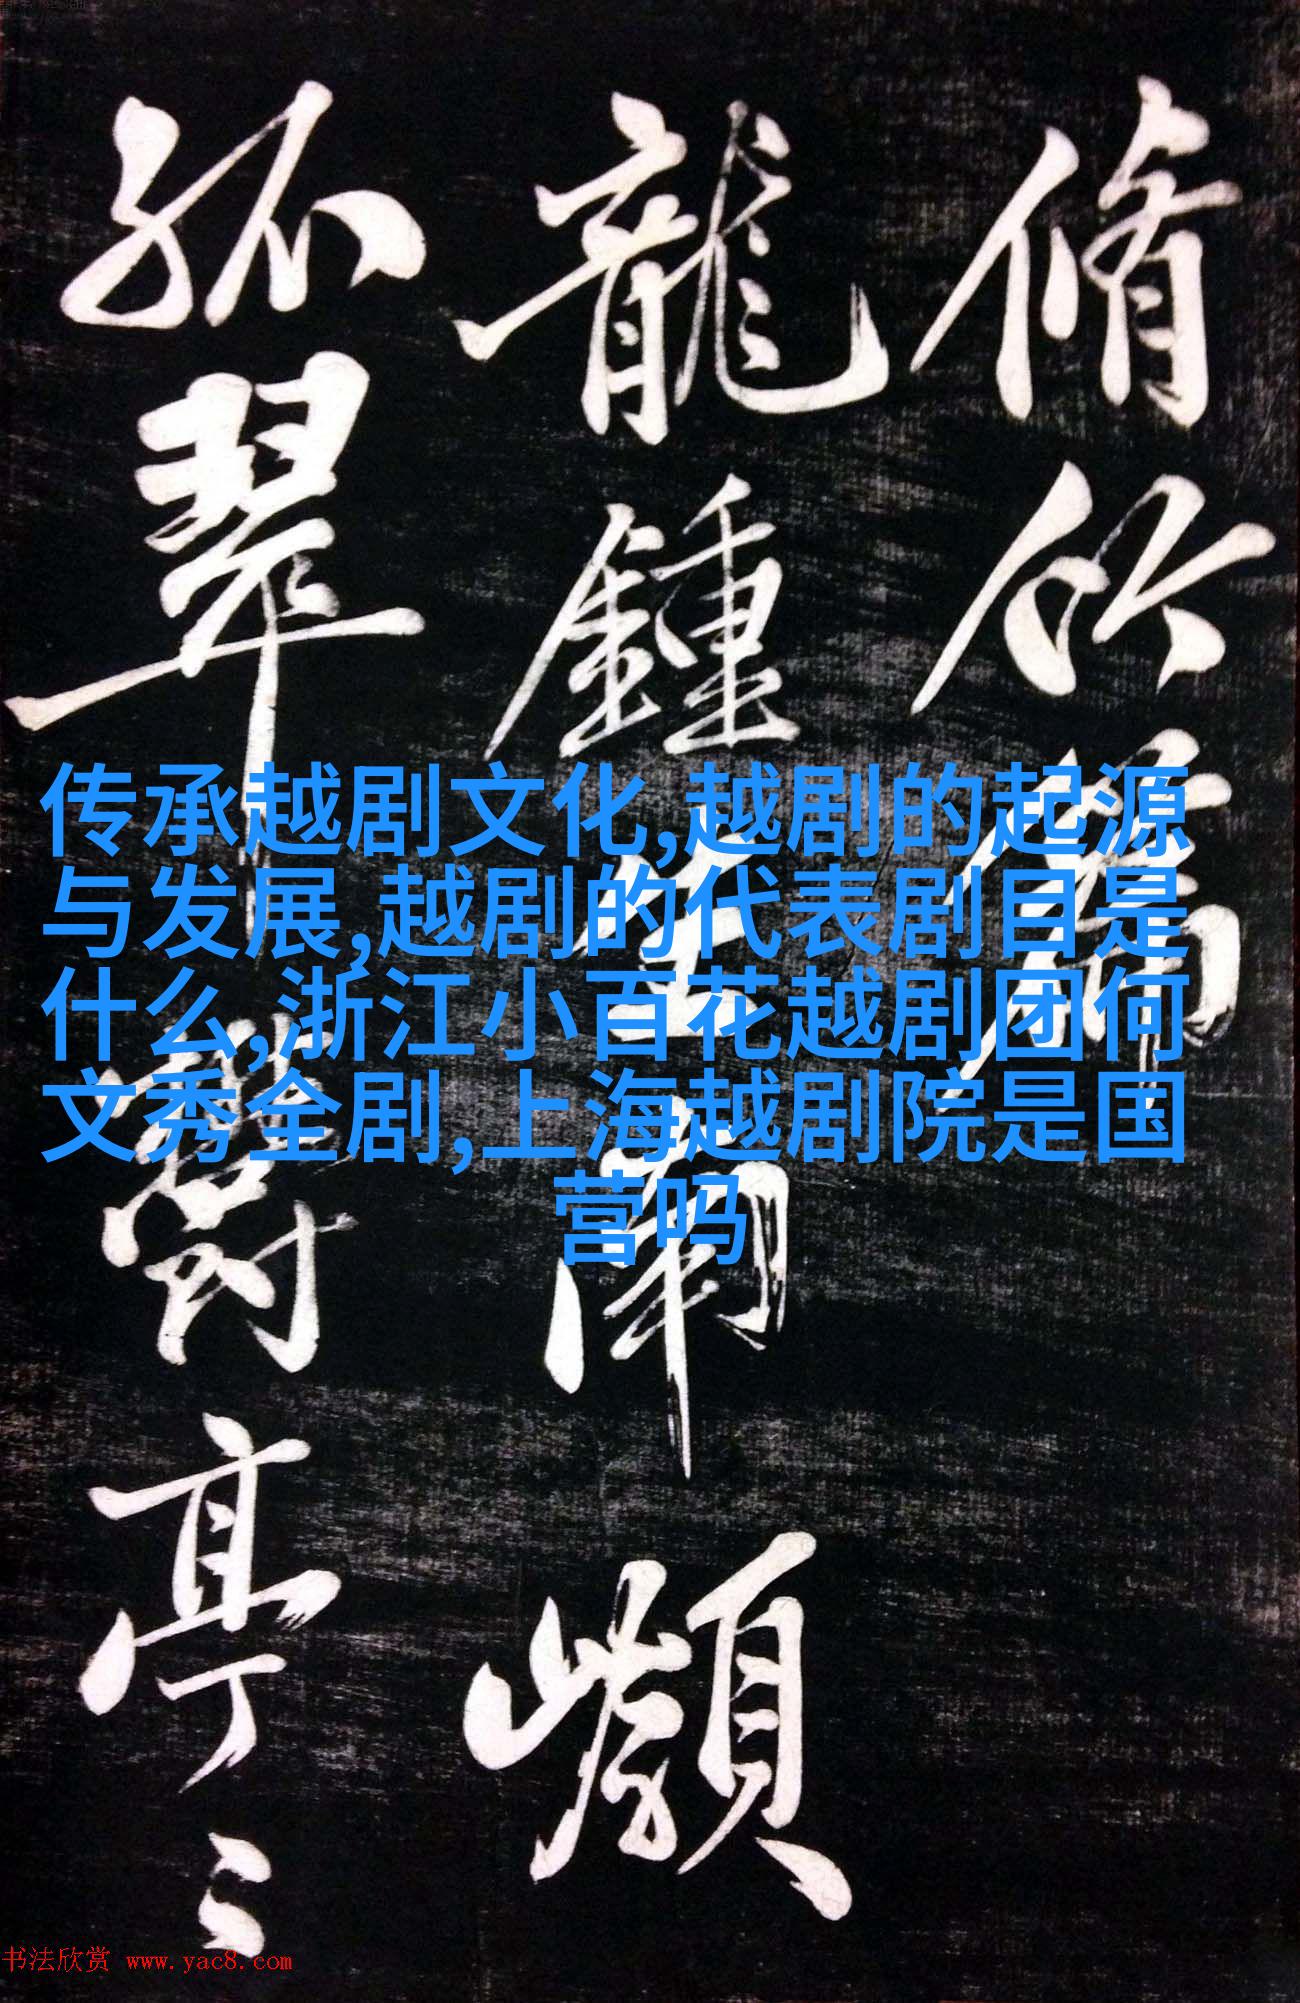 脩竹篇
龍鍾生南巔
孤翠鬱亭〻
传承越剧文化,越剧的起源
与发展,越剧的代表剧目是
什么,浙江小百花越剧团何
文秀全剧,上海越剧院是国
营吗
书法欣赏 www.yac8.com